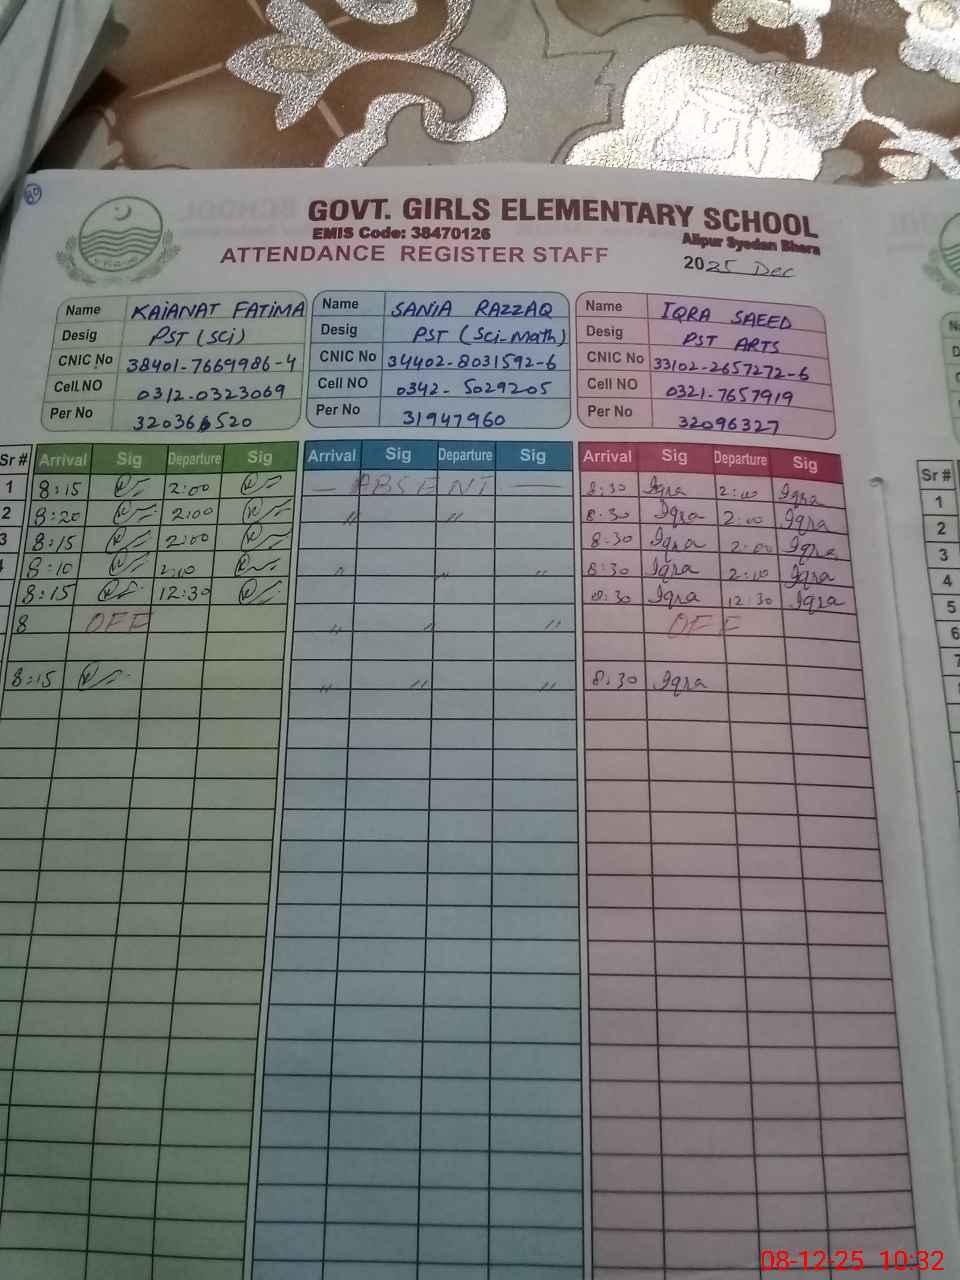 89
GOVT. GIRLS ELEMENTARY SCHOOL
EMIS Code: 38470126
Alipur Syedan Bhera
ATTENDANCE REGISTER STAFF
2025 Dec
Name KAIANAT FATIMA
Desig PST (Sci)
CNIC No 38401-7669986-4
Cell NO 0312-0323069
Per No 32036520
Name SANIA RAZZAQ
Desig PST (Sci-Math)
CNIC No 34402-8031592-6
Cell NO 0342-5029205
Per No 31947960
Name IQRA SAEED
Desig PST ARTS
CNIC No 33102-2657272-6
Cell NO 0321-7657919
Per No 32096327
Sr # Arrival Sig Departure Sig Arrival Sig Departure Sig Arrival Sig Departure Sig Sr #
1 8:15 2:00 — ABSENT — 8:30 Iqra 2:00 Iqra 1
2 8:20 2:00 " " 8:30 Iqra 2:00 Iqra 2
3 8:15 2:00 8:30 Iqra 2:00 Iqra 3
8:10 2:00 " " " 8:30 Iqra 2:00 Iqra 4
8:15 12:30 8:30 Iqra 12:30 Iqra 5
8 OFF " " " OFF 6
7
8:15 " " " 8:30 Iqra
08-12-25 10:32